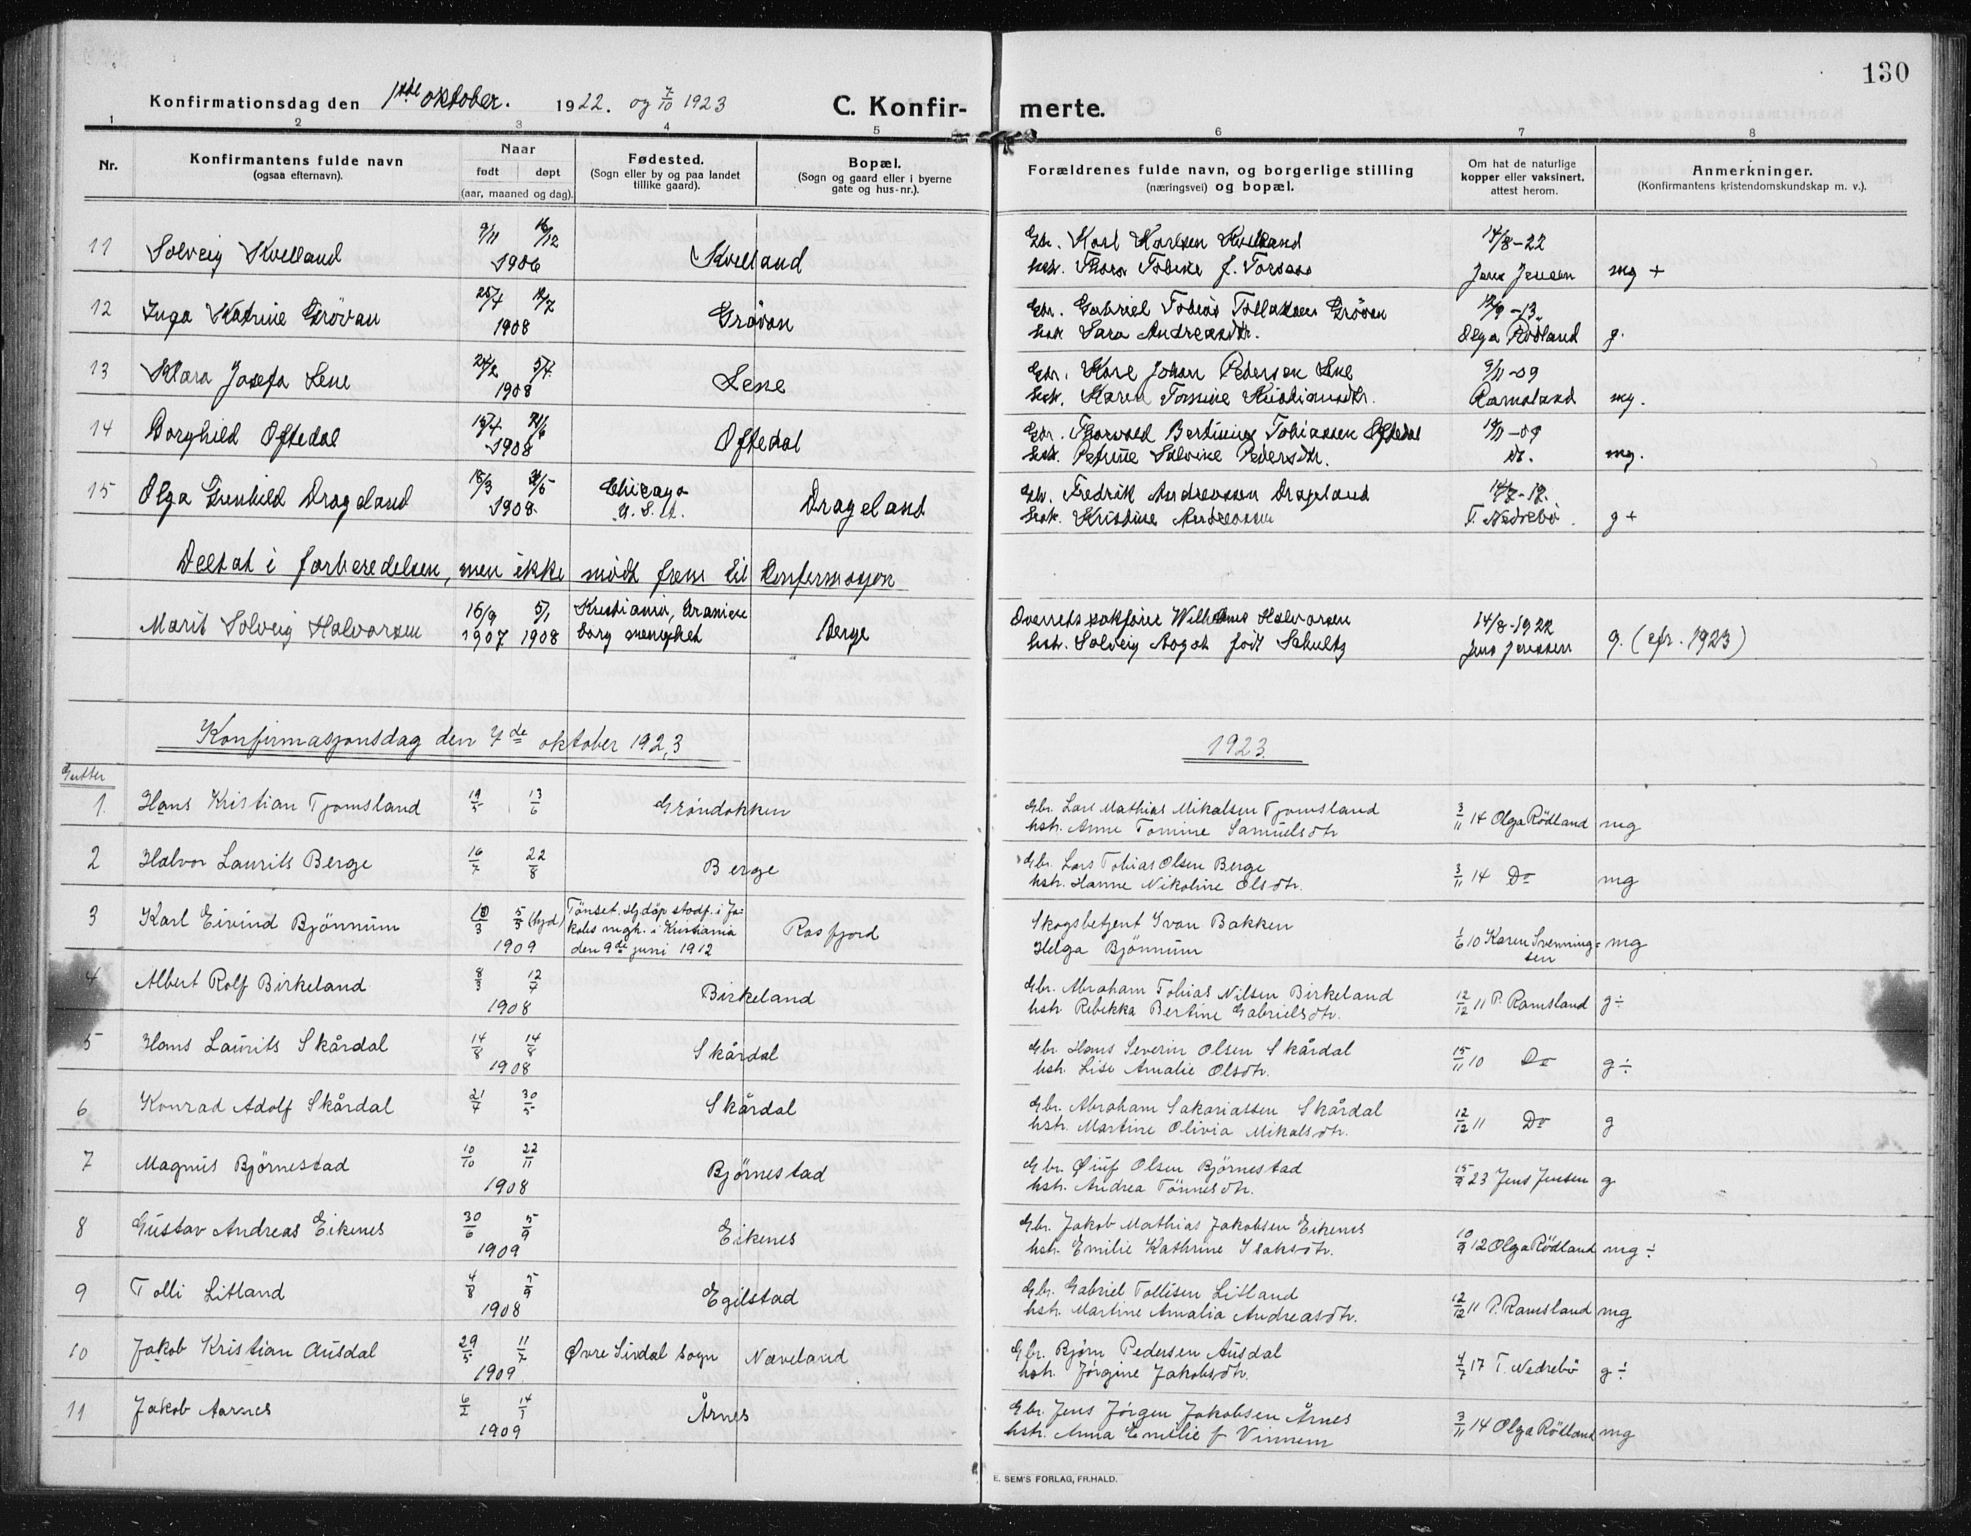 130
Konfirmationsdag den 1ste oktober. 1922. og 7/10 1923 C. Konfir- merte.
1 2 3 4 5 6 7 8
Nr. Konfirmantens fulde navn (ogsaa efternavn). Naar født døpt (aar, maaned og dag). Fødested. (Sogn eller by og paa landet tillike gaard). Bopæl. (Sogn og gaard eller i byerne gate og hus-nr.). Forældrenes fulde navn, og borgerlige stilling (næringsvei) og bopæl. Om hat de naturlige kopper eller vaksinert, attest herom. Anmerkninger. (Konfirmantens kristendomskundskap m. v.).
11 Solveig Kvelland 9/11 16/12 1906 Kvelland Gbr. Karl Karlsen Kvelland 14/8-22
hstr. Thora Tobine f. Jens Jensen mg +
12 Inga Katrine Grövan 25/4 12/7 1908 Grövan Gbr. Gabriel Tobias Tollaksen Grövan 12/9-13.
hstr. Sara Andreasdtr. Olga Rödland g.
13 Klara Josefa Lene 24/2 5/4 1908 Lene Gbr. Karl Johan Pedersen Lene 9/11-09
hstr. Karen Tomine Kristiansdtr. Ramsland mg.
14 Borghild Oftedal 1908 Oftedal Gbr. Thorvald Bertinius Tobiassen Oftedal 19/11-09
hstr. Petrine Salvine Pedersdtr. Do. mg.
15 Olga Gunhild Drageland 18/3 31/5 1908 Chicago U.S.A. Drageland Gbr. Fredrik Andreassen Drageland 14/7-17.
hstr. Kristine Andreassen T. Nedrebö. g +
Deltat i forberedelsen, men ikke mödt frem til konfirmasjon
Marit Solveig Halvorsen 16/9 1907 5/1 1908 Kristiania, Uranien- Berge Overretssakförer Wilhelm Halvorsen 14/8-1922
borg menighet hstr. Solveig Aagot født Schultz Jens Jenssen g. (cfr. 1923)
Konfirmasjonsdag den 7de oktober 1923 1923
Gutter
1. Hans Kristian Tjomsland 19/5 13/6 Gröndokken Gbr. Lars Mathias Mikalsen Tjomsland 3/11 14 Olga Rödland mg
hstr. Anne Tomine Samuelsdtr
2 Halvor Laurits Berge 16/7 22/8 Berge Gbr. Lars Tobias Olsen Berge 3/11 14 Do mg
hstr. Hanne Nikoline Olsdtr.
3 Karl Eivind Bjönnum 10/3 5/5 (hjd) 1909 Tönset. Hjdåp stadf. i Ja- Rosfjord Skogsbetjent Ivan Bakken 1/6 10 Karen Svenning- mg
kobs mgh. i Kristiania Helga Bjönnum sen
den 9de juni 1912
4 Albert Rolf Birkeland 8/3 12/4 1908 Birkeland Gbr. Abraham Tobias Nilsen Birkeland 12/12 11 P. Ramsland g÷
hstr Rebekka Bertine Gabrielsdtr.
5 Hans Laurits Skårdal 14/8 14/8 1908 Skårdal Gbr. Hans Severin Olsen Skårdal 15/11 10 Do g÷
hstr. Lise Amalie Olsdtr.
6 Konrad Adolf Skårdal 21/4 30/5 Skårdal Gbr. Abraham Sakariassen Skårdal 12/12 11 Do g
hstr. Martine Olivia Mikalsdtr.
7 Magnus Bjørnestad 10/10 22/11 1908 Bjørnestad Gbr. Olsen Bjørnestad 15/9 23 Jens Jensen g
hstr. Andrea Tönnesdtr.
8 Gustav Andreas Eikenes 30/6 5/9 1909 Eikenes Gbr. Jakob Mathias Jakobsen Eikenes 10/9 12 Olga Rödland mg÷
hstr. Emilie Kathrine Isaksdtr.
9 Tolli Litland 4/8 5/9 1908 Egilstad Gbr. Gabriel Tollisen Litland 12/12 11 P. Ramsland mg
hstr. Martine Amalia Andreasdtr.
10 Jakob Kristian Ausdal 29/5 11/7 1909 Øvre Sirdal sogn Næveland Gbr. Bjørn Pedersen Ausdal 4/7 17 T. Nedrebö g÷
hstr. Jørgine Jakobsdtr.
11 Jakob Aarnes 6/2 14/1 1909 Årnes Gbr. Jens Jörgen Jakobsen Årnes 3/11 14 Olga Rödland mg
hstr. Anna Emilie f Vinnem
E. SEM'S FORLAG, FR.HALD.